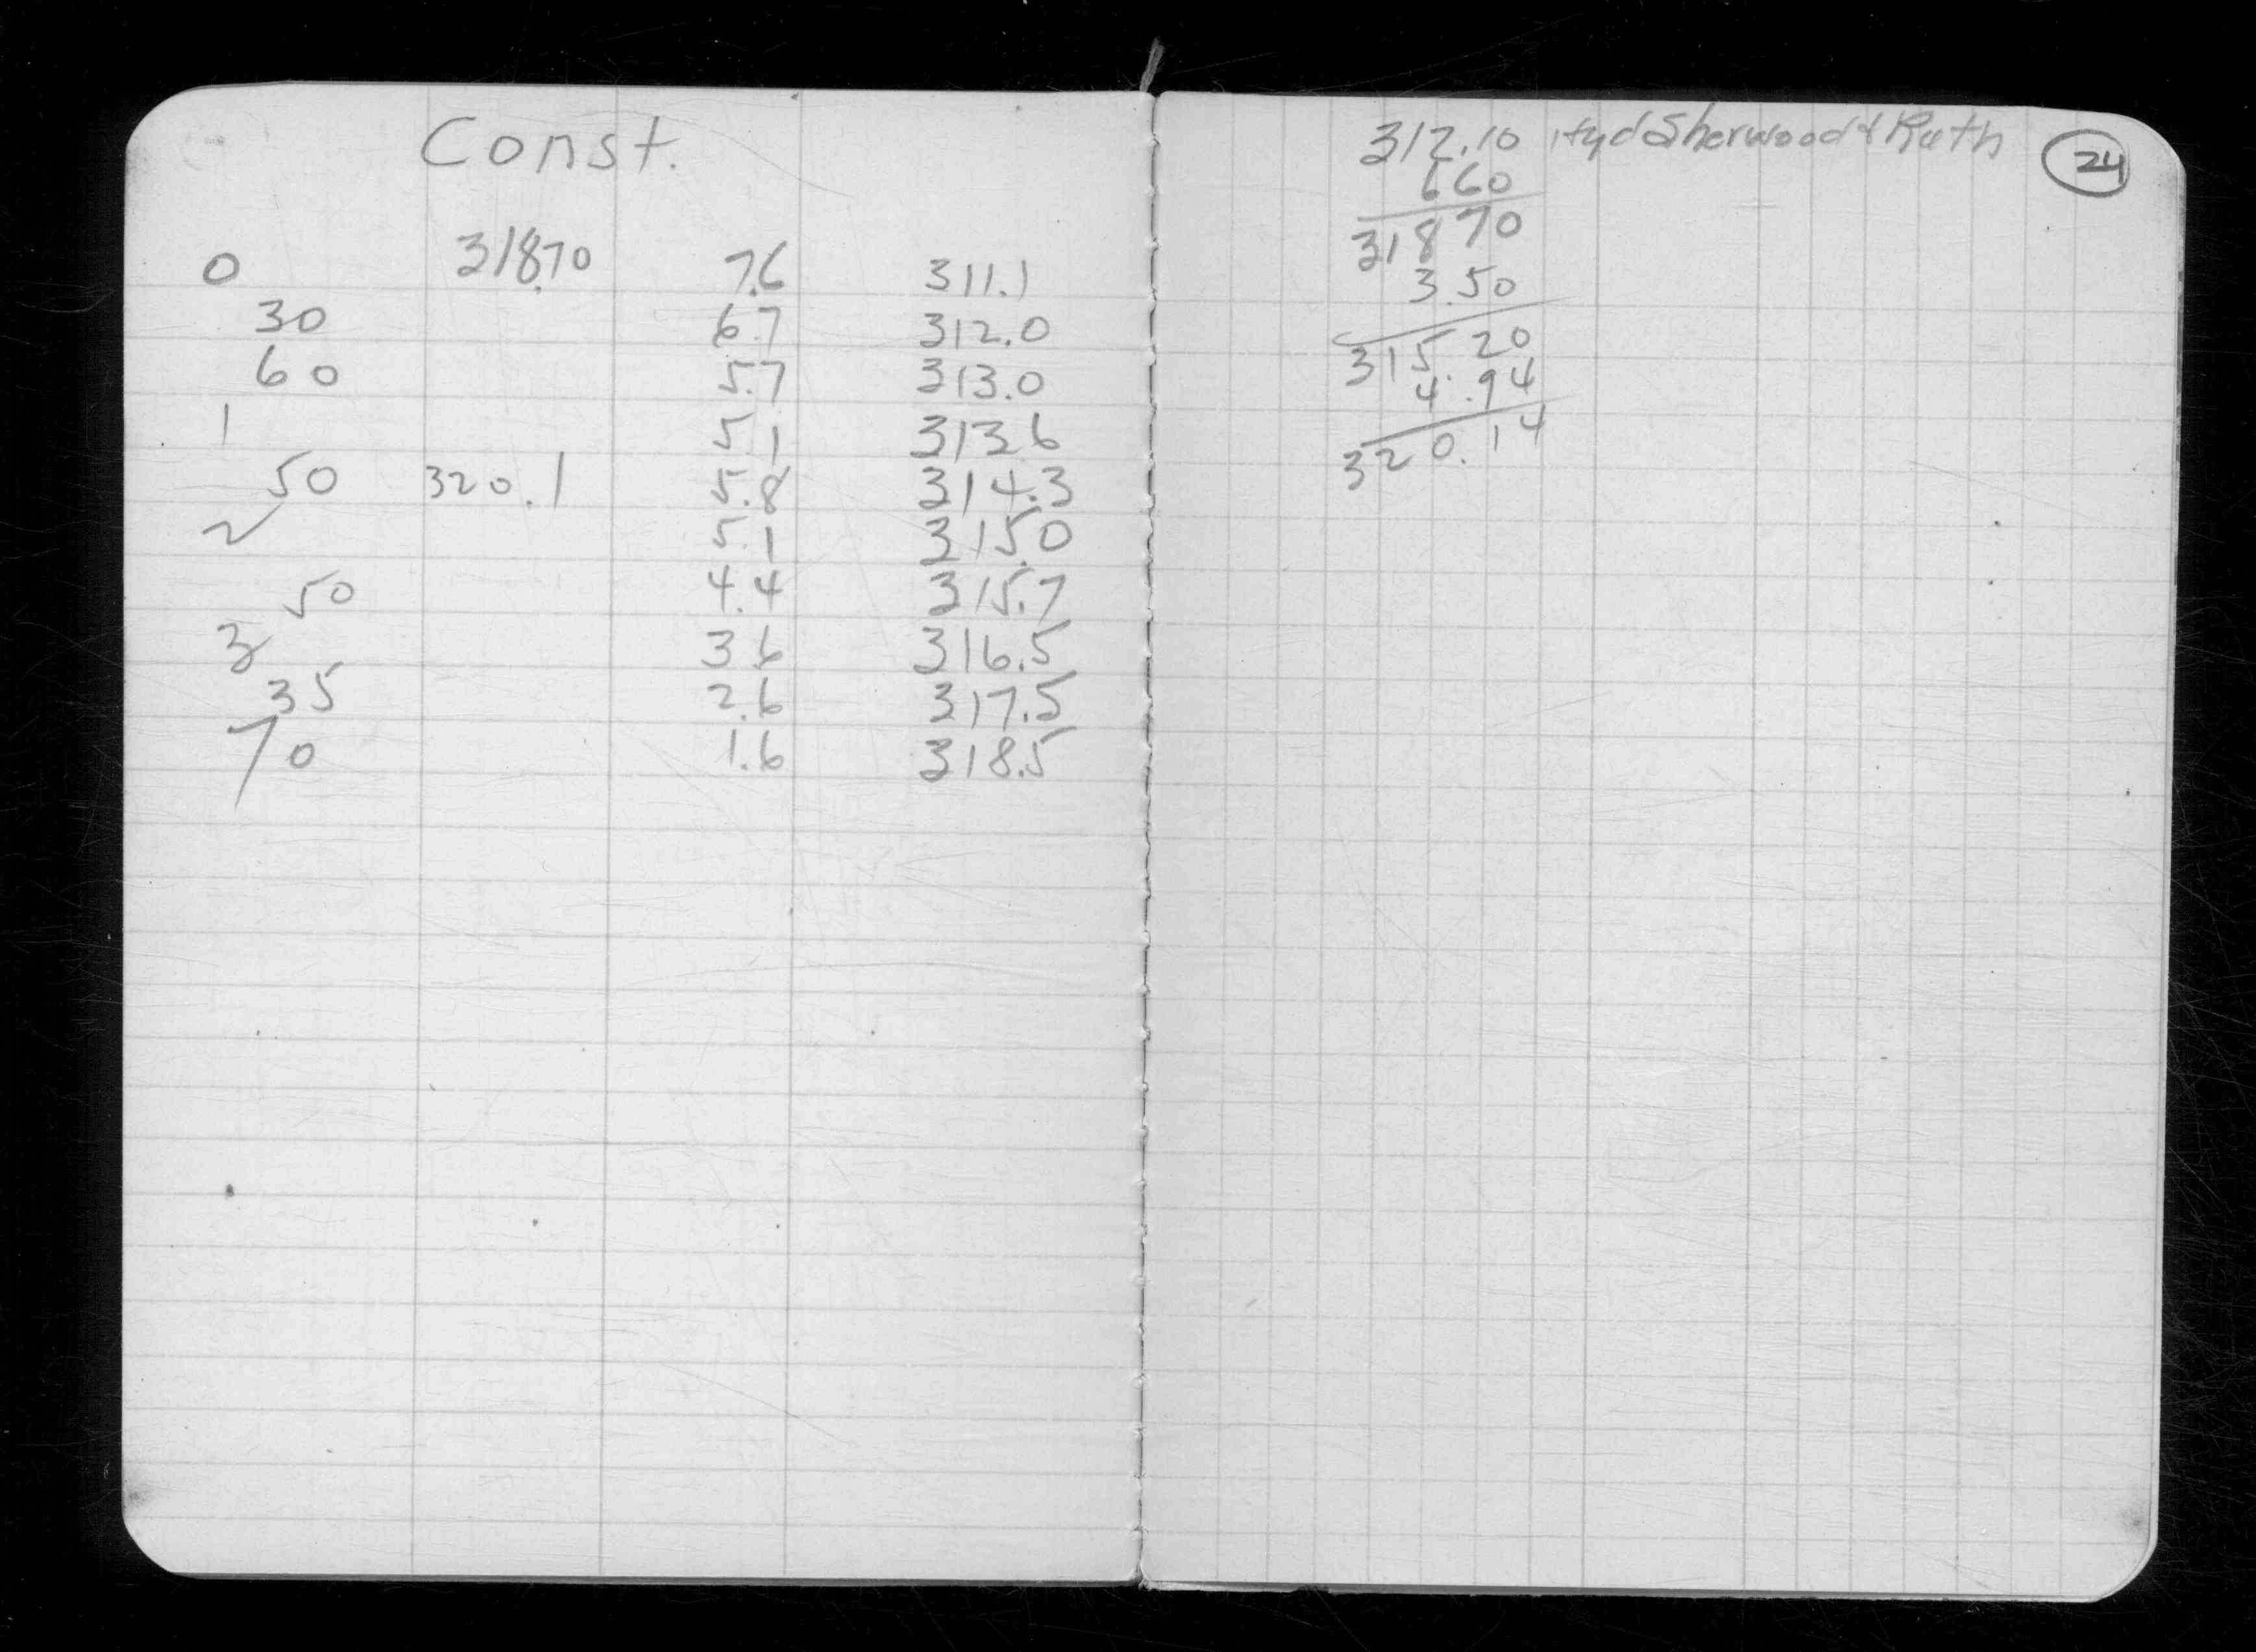 Const.
0 318.70 7.6 311.1
30 6.7 312.0
60 5.7 313.0
1 5.1 313.6
50 320.1 5.8 314.3
2 5.1 315.0
50 4.4 315.7
3 3.6 316.5
35 2.6 317.5
70 1.6 318.5
312.10 Hyd Sherwood & Ruth
24
660
31870
3.50
315.20
4.94
320.14